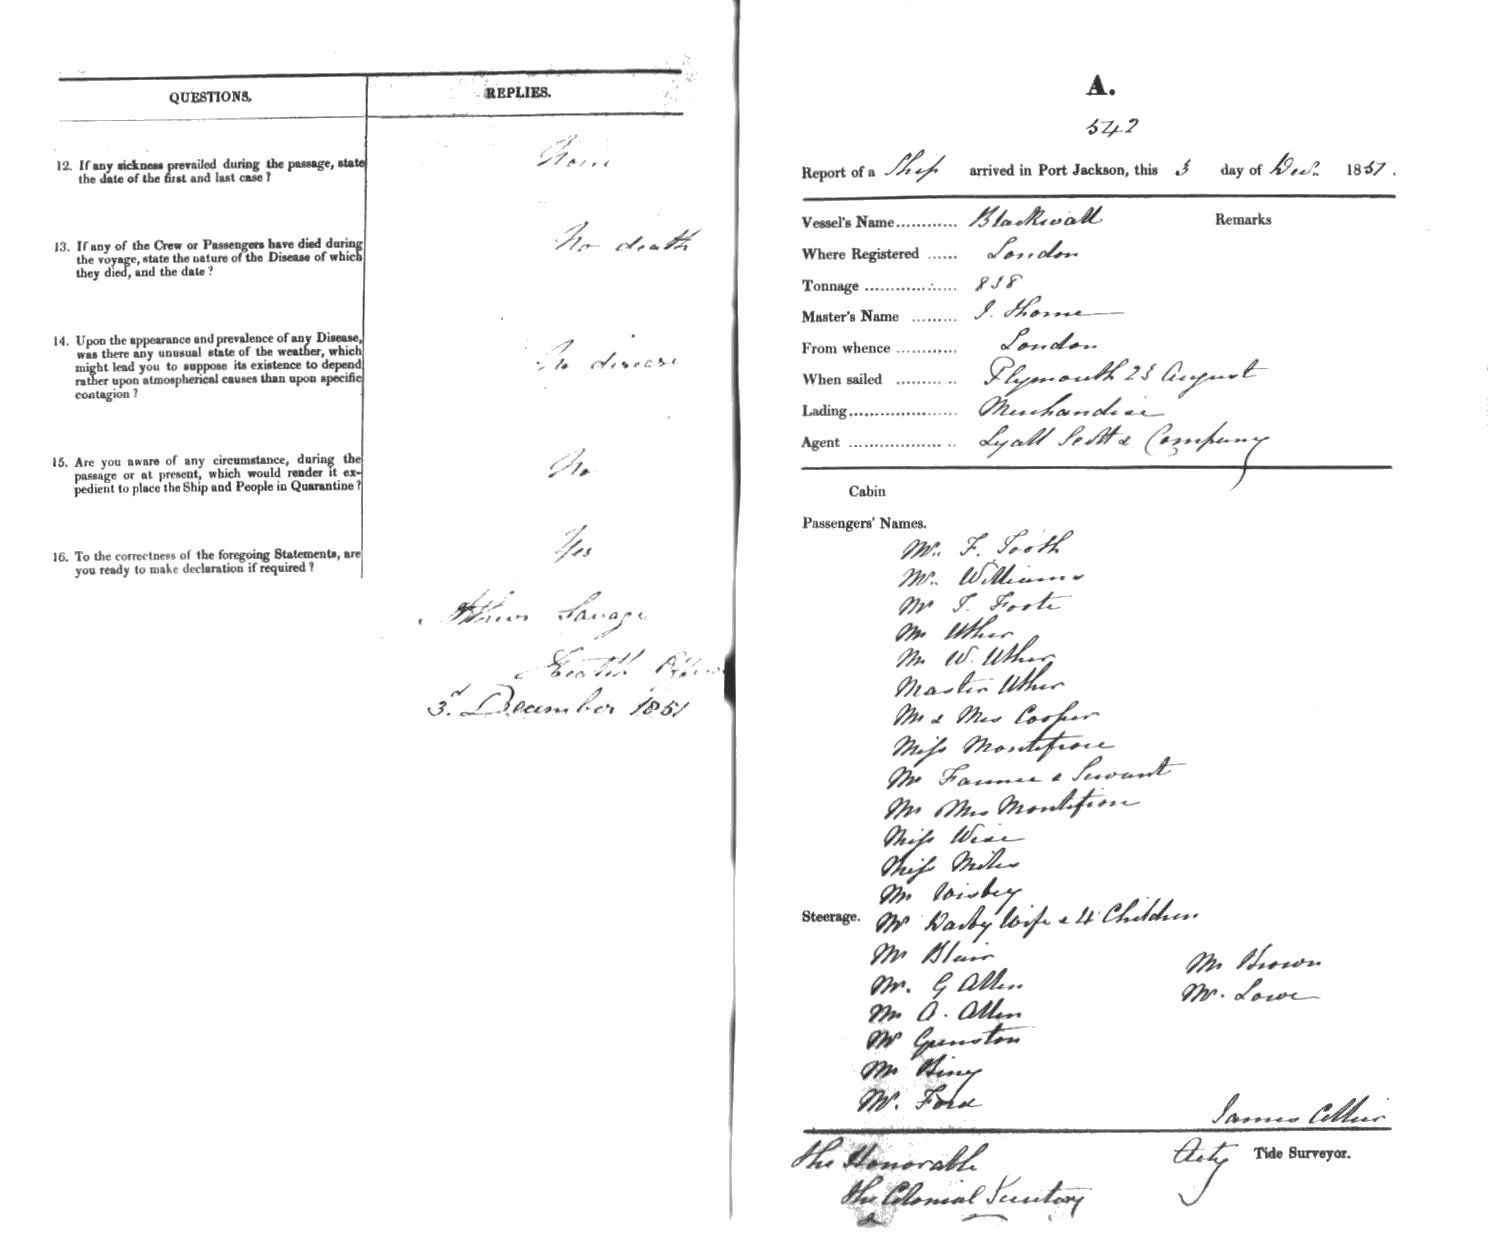 QUESTIONS.
REPLIES.
12. If any sickness prevailed during the passage, state
the date of the first and last case?
None
13. If any of the Crew or Passengers have died during
the voyage, state the nature of the Disease of which
they died, and the date?
No death
14. Upon the appearance and prevalence of any Disease,
was there any unusual state of the weather, which
might lead you to suppose its existence to depend
rather upon atmospherical causes than upon specific
contagion?
No disease
15. Are you aware of any circumstance, during the
passage or at present, which would render it ex-
pedient to place the Ship and People in Quarantine?
No
16. To the correctness of the foregoing Statements, are
you ready to make declaration if required?
Yes
Savage
Health
3rd December 1851
A.
542
Report of a Ship arrived in Port Jackson, this 3 day of Decr. 1851.
Vessel's Name Blackwall
Remarks
Where Registered London
Tonnage 838
Master's Name I. Thorne
From whence London
When sailed Plymouth 23 August
Lading Merchandise
Agent Lyall Scott & Company
Cabin
Passengers' Names.
Mr. F. Tooth
Mr. Williams
Mr T. Foote
Mr Uther
Mr W. Uther
Master Uther
Mr & Mrs Cooper
Miss Montefiore
Mr Faunce & Servant
Mr Mrs Montefiore
Miss Wise
Miss Miles
Mr
Steerage. Mr Darby Wife & 4 Children
Mr Blair
Mr Brown
Mr. G Allen
Mr. Lowe
Mr A. Allen
Mr
Mr
Mr. Ford
James Collier
Actg Tide Surveyor.
The Honorable
The Colonial Secretary